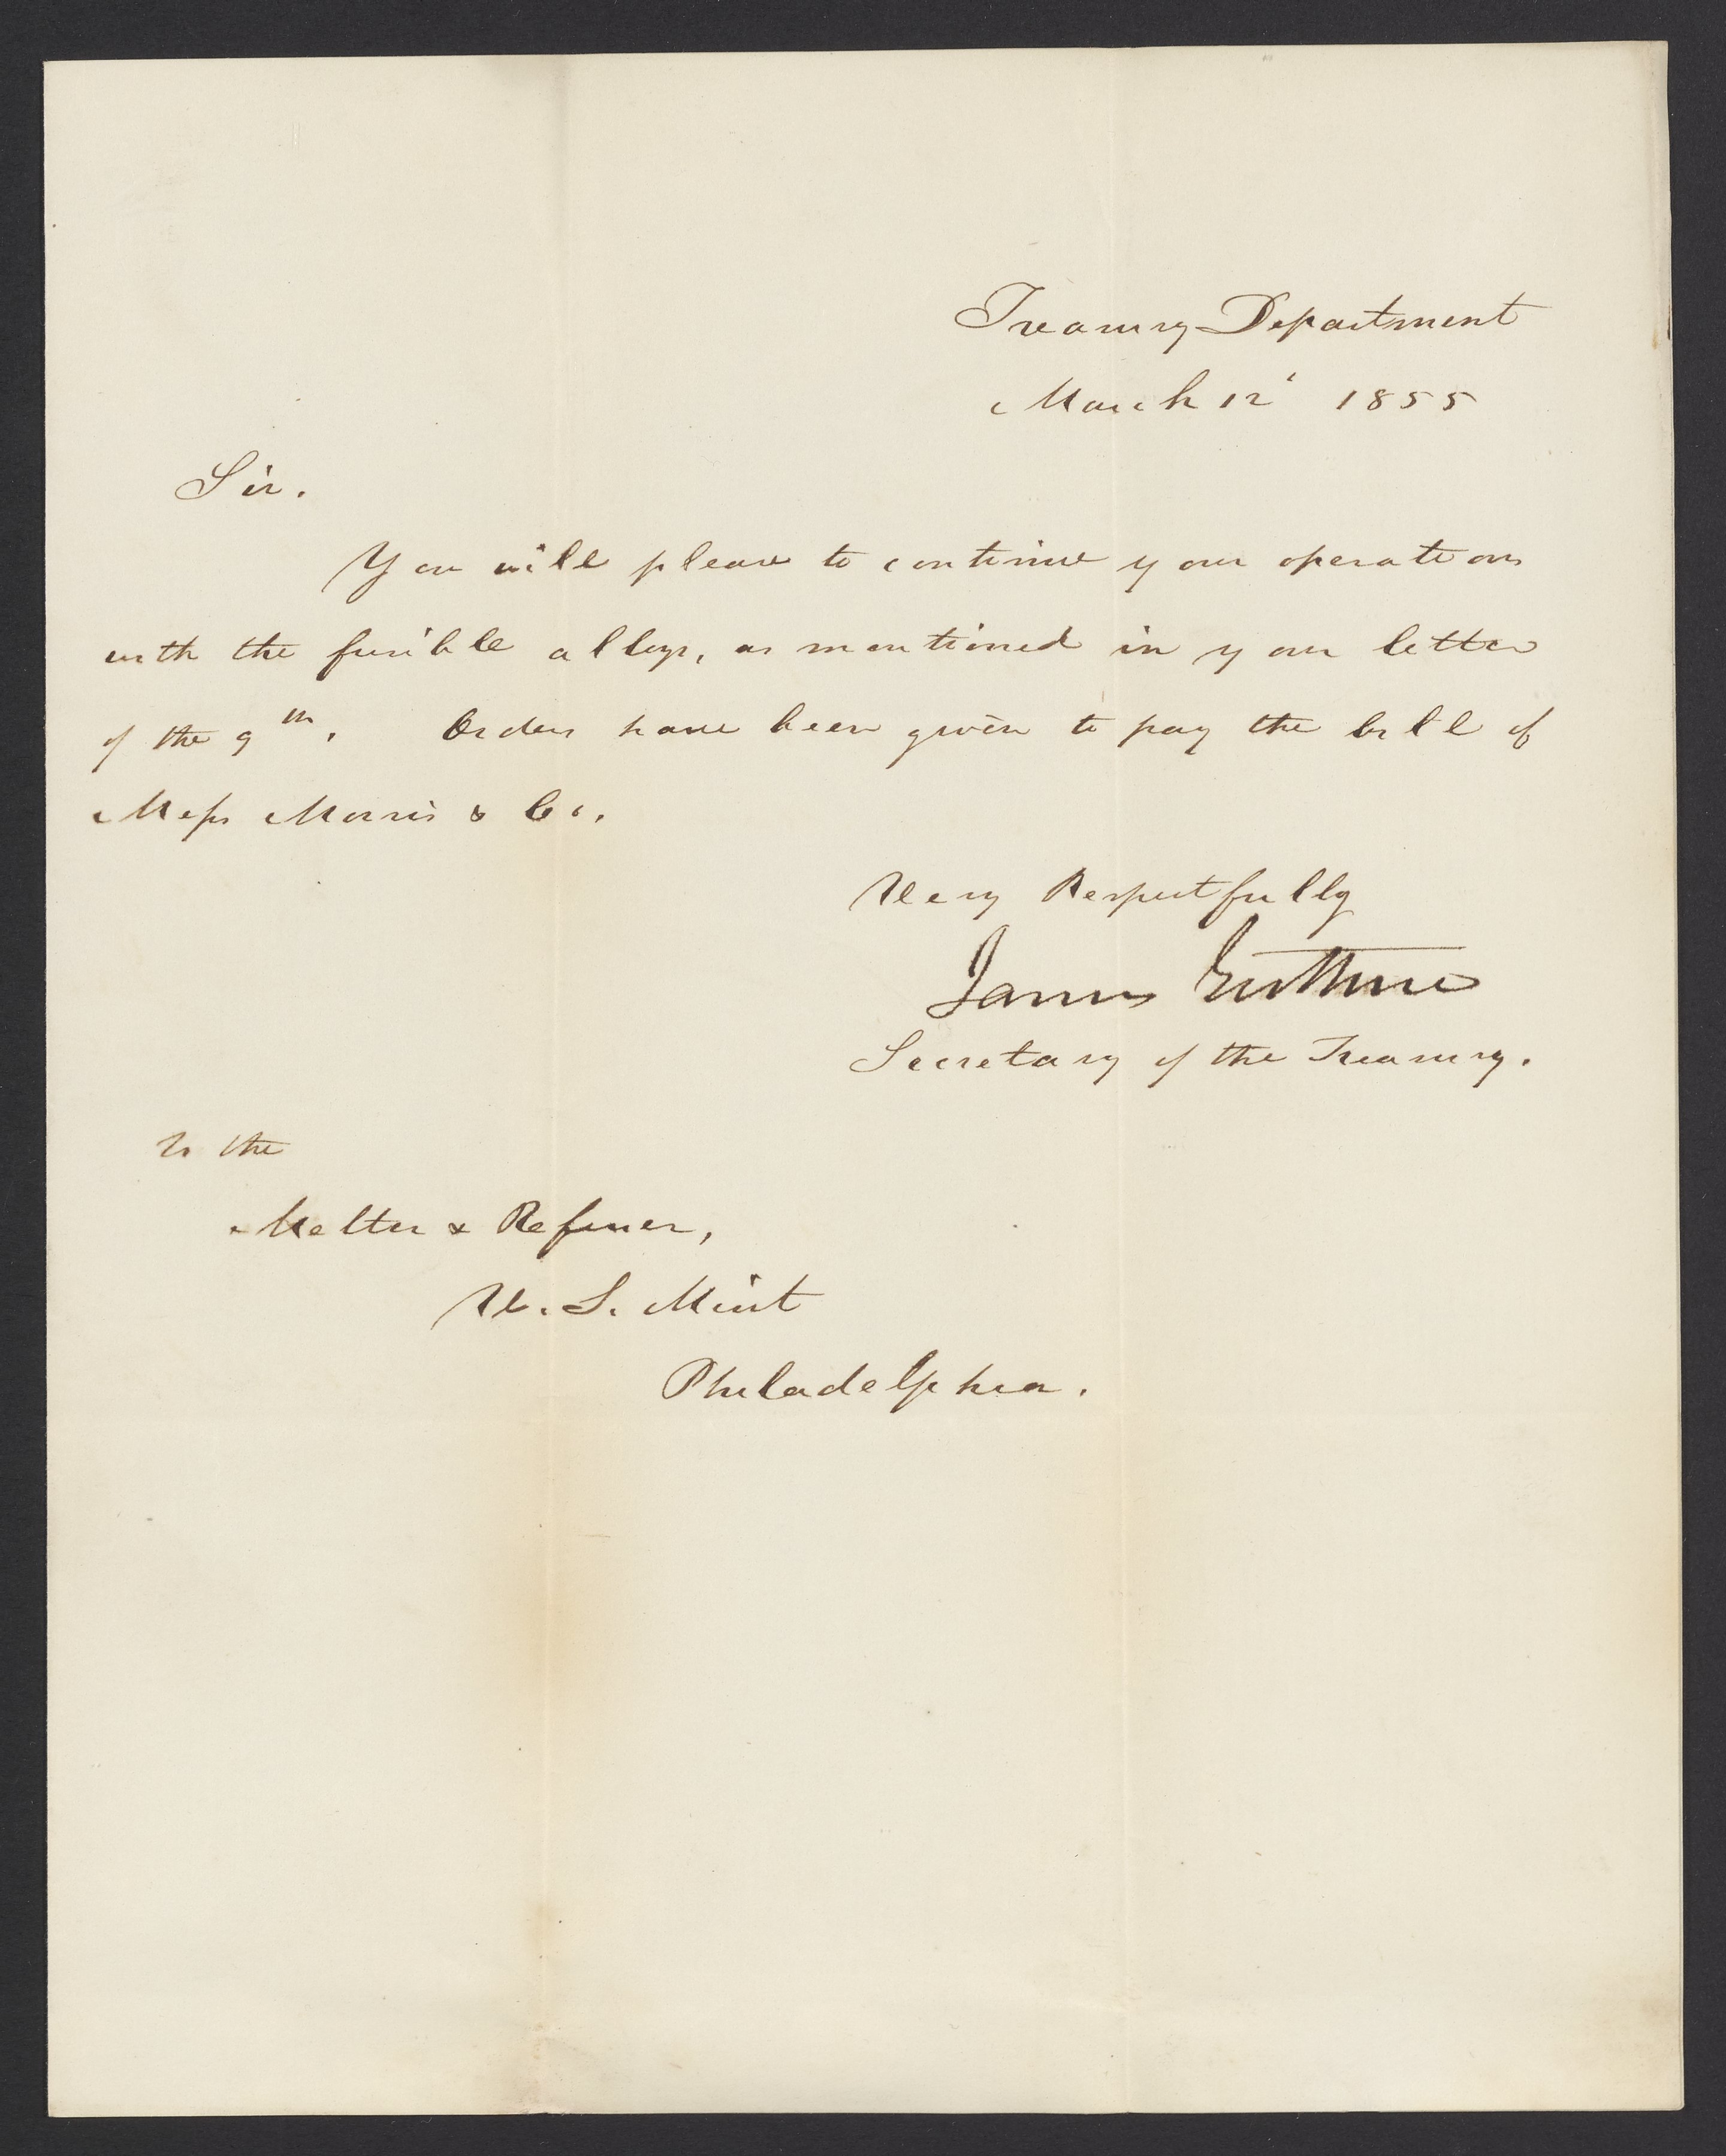 Treasury Department
March 12' 1855
Sir.
You will please to continue your operations
with the fusible alloys, as mentioned in your letter
of the 9th. Orders have been given to pay the bill of
Messrs Morris & Co.
Very Respectfully
James Guthrie
Secretary of the Treasury.
To the
Melter & Refiner,
U. S. Mint
Philadelphia.